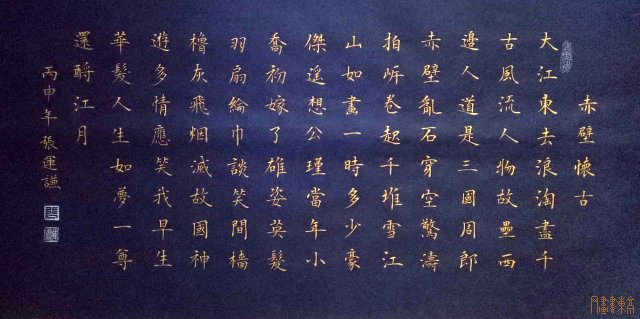 赤壁懷古
大江東去浪淘盡千
古風流人物故壘西
邊人道是三國周郎
赤壁亂石穿空驚濤
拍岍卷起千堆雪江
山如畫一時多少豪
傑遙想公瑾當年小
喬初嫁了雄姿英髮
羽扇綸巾談笑間檣
櫓灰飛烟滅故國神
遊多情應笑我早生
華髮人生如夢一尊
還酹江月
丙申年張運謙